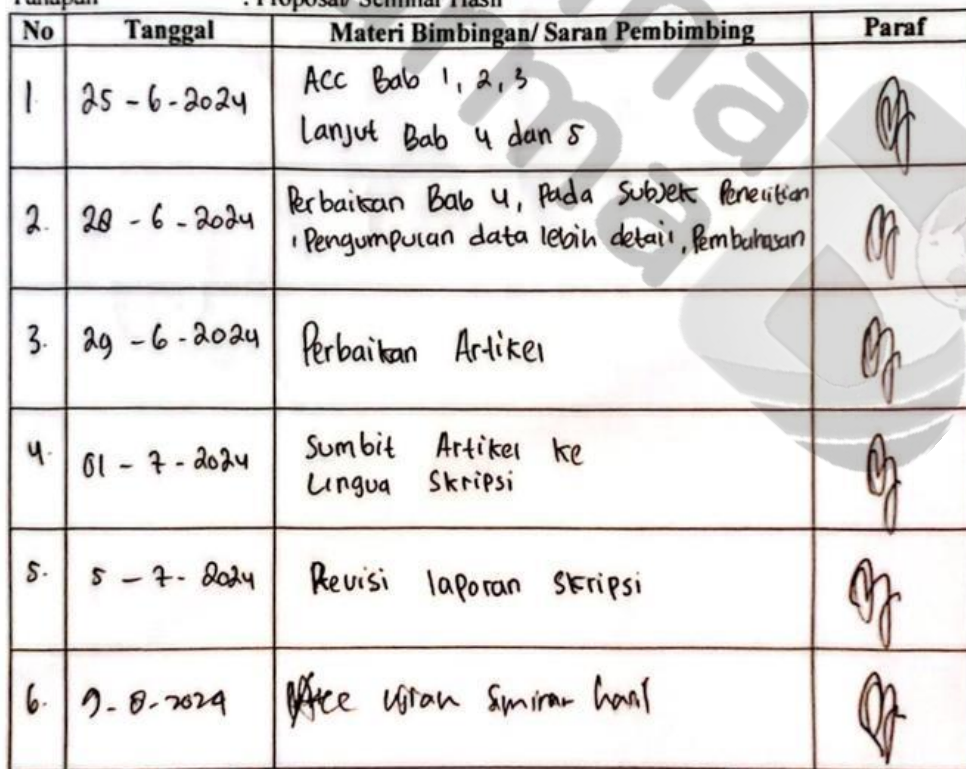 Tahapan : Proposal/ Seminar Hasil
No Tanggal Materi Bimbingan/ Saran Pembimbing Paraf
1. 25 - 6 - 2024 Acc Bab 1, 2, 3
Lanjut Bab 4 dan 5
2. 28 - 6 - 2024 Perbaikan Bab 4, Pada Subjek Penelitian
, Pengumpulan data lebih detail, Pembahasan
3. 29 - 6 - 2024 Perbaikan Artikel
4. 01 - 7 - 2024 Sumbit Artikel ke
Lingua Skripsi
5. 5 - 7 - 2024 Revisi laporan Skripsi
6. 9 - 8 - 2024 Acc ujian hasil